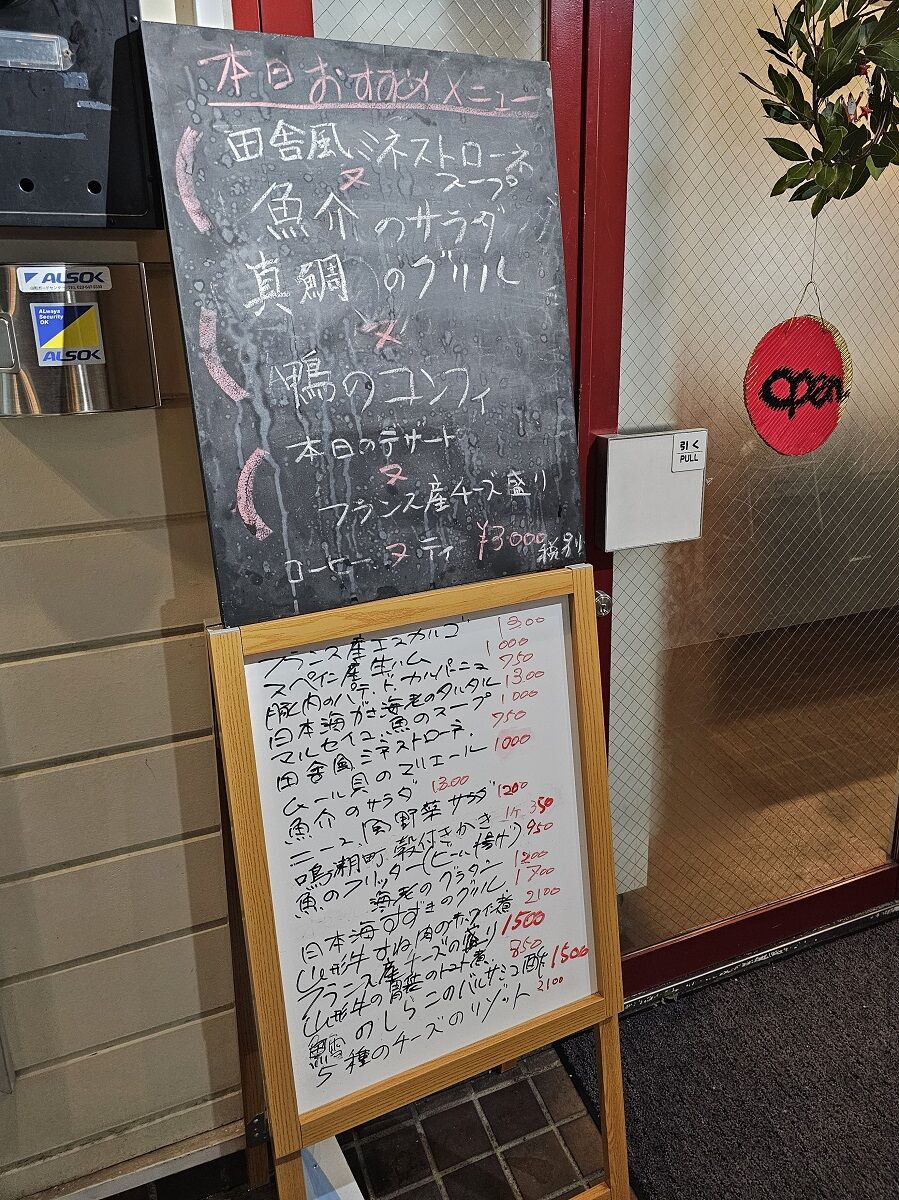 本日おすすめメニュー
田舎風ミネストローネ
スープ
又
魚介のサラダ
真鯛のグリル
又
鴨のコンフィ
本日のデザート
又
フランス産チーズ盛り
コーヒー 又 ティ ¥3000 税別
ALSOK
ALways
Security
OK
ALSOK
open
引く
PULL
フランス産エスカルゴ 1300
スペイン産生ハム 1000
豚肉のパテ.ド.カルパーニュ 750
日本海がさ海老のタルタル 1300
マルセイユ魚のスープ 1000
田舎風ミネストローネ. 750
ムール貝のマリエール 1000
魚介のサラダ 1300
ニース風野菜サラダ 1200
鳴瀬町殻付きかき 1ケ 350
魚のフリッター(ビール揚げ) 950
海老のグラタン 1200
日本海すずきのグリル 1700
山形牛すね肉の赤ワイン煮 2100
フランス産チーズの盛り 1500
山形牛の胃袋のトマト煮 850
鱈のしらこのバルサミコ酢 1500
5種のチーズのリゾット 2100